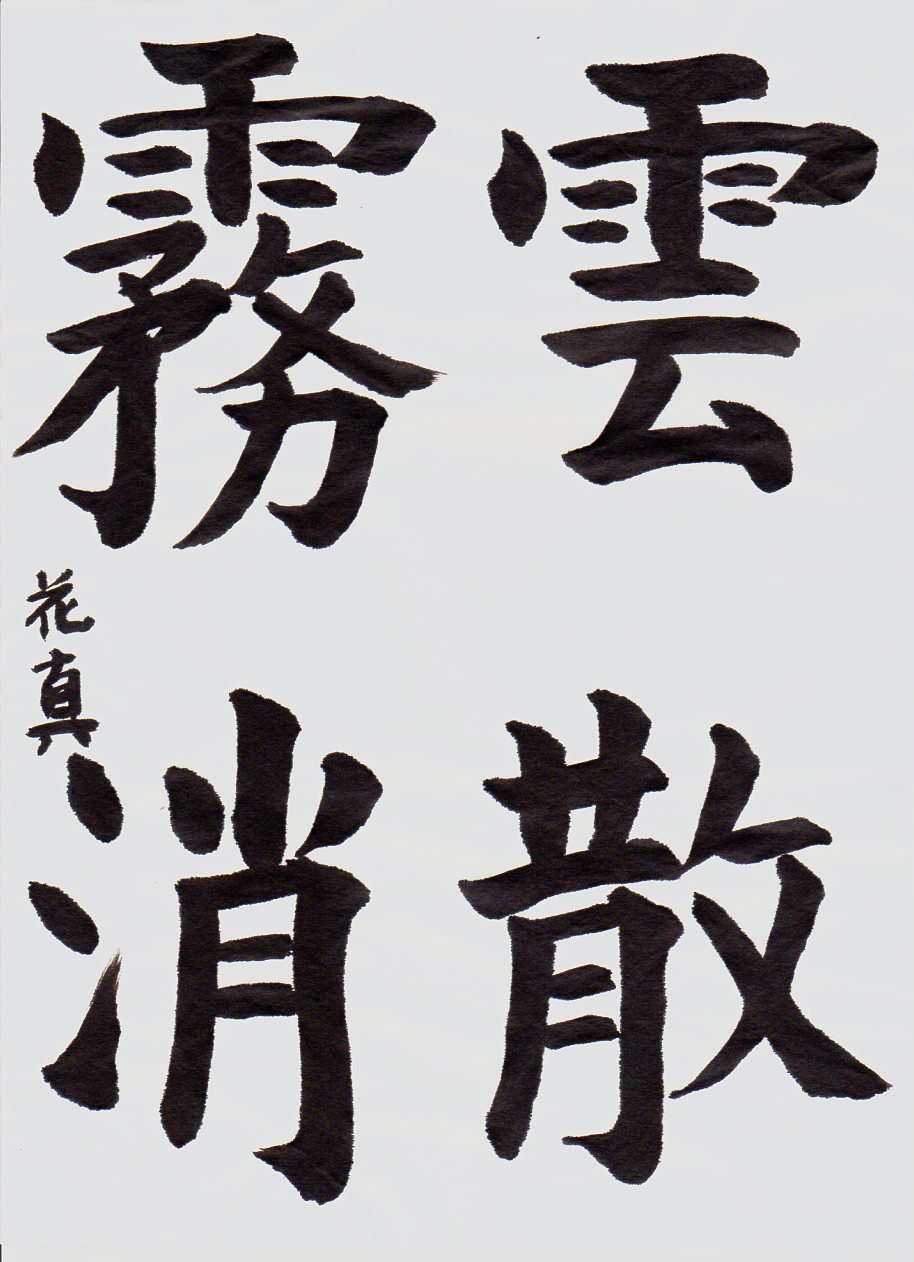 雲散
霧消
花真